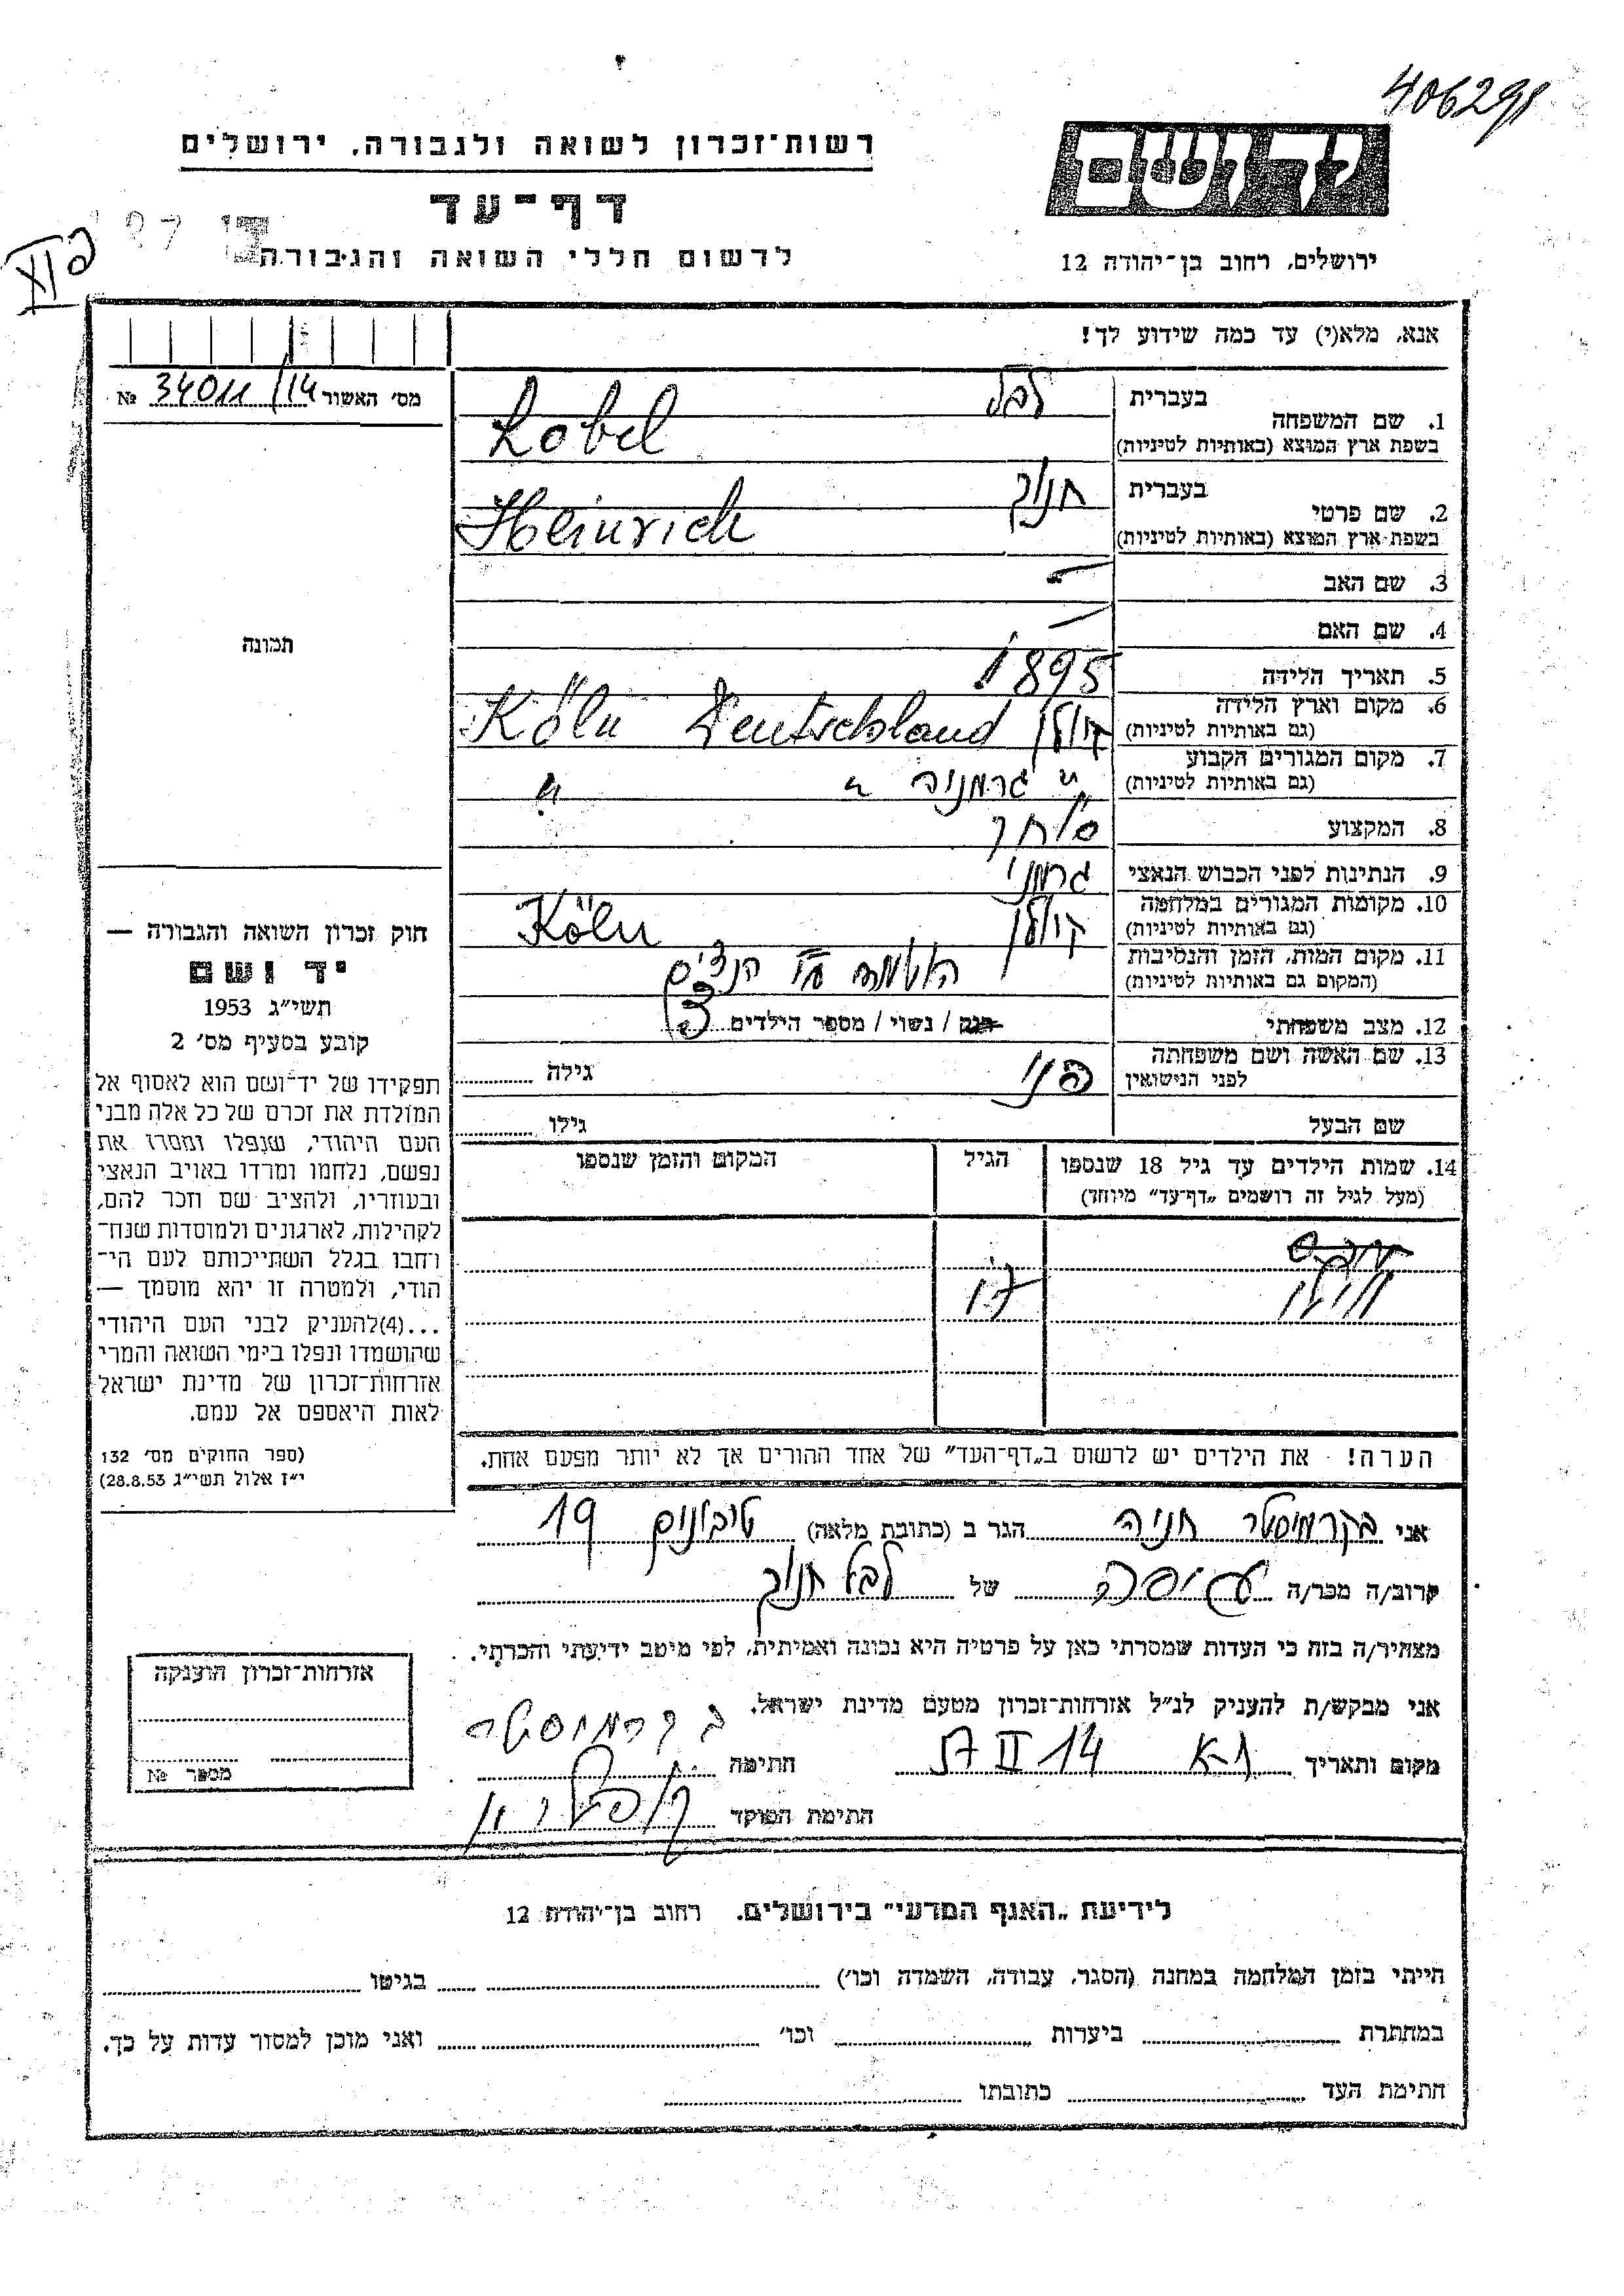 406298
רשות־זכרון לשואה ולגבורה, ירושלים
יד ושם
דף־עד
לרשום חללי השואה והגבורה
ירושלים, רחוב בן־יהודה 12
אנא, מלא(י) עד כמה שידוע לך!
מס׳ האשור 34011/14 №
1. שם המשפחה
בעברית לבל
בשפת ארץ המוצא (באותיות לטיניות) Lobel
2. שם פרטי
בעברית חנוך
בשפת ארץ המוצא (באותיות לטיניות) Heinrich
3. שם האב —
4. שם האם —
5. תאריך הלידה 1895
6. מקום וארץ הלידה
(גם באותיות לטיניות) קולן Köln Deutschland
7. מקום המגורים הקבוע
(גם באותיות לטיניות) " גרמניה " "
8. המקצוע סוחר
9. הנתינות לפני הכבוש הנאצי גרמני
10. מקומות המגורים במלחמה
(גם באותיות לטיניות) קולן Köln
11. מקום המות, הזמן והנסיבות
(המקום גם באותיות לטיניות) הושמד ע״י הנצים
12. מצב משפחתי רוק / נשוי / מספר הילדים 3
13. שם האשה ושם משפחתה
לפני הנישואין פני גילה
שם הבעל גילו
14. שמות הילדים עד גיל 18 שנספו הגיל המקום והזמן שנספו
(מעל לגיל זה רושמים „דף־עד״ מיוחד)
17
הערה! את הילדים יש לרשום ב„דף־העד״ של אחד ההורים אך לא יותר מפעם אחת.
תמונה
חוק זכרון השואה והגבורה —
יד ושם
תשי״ג 1953
קובע בסעיף מס׳ 2
תפקידו של יד־ושם הוא לאסוף אל
המולדת את זכרם של כל אלה מבני
העם היהודי, שנפלו ומסרו את
נפשם, נלחמו ומרדו באויב הנאצי
ובעוזריו, ולהציב שם וזכר להם,
לקהילות, לארגונים ולמוסדות שנח־
רחבו בגלל השתייכותם לעם הי־
הודי, ולמטרה זו יהא מוסמך —
...(4)להעניק לבני העם היהודי
שהושמדו ונפלו בימי השואה והמרי
אזרחות־זכרון של מדינת ישראל
לאות היאספם אל עמם.
(ספר החוקים מס׳ 132
י״ז אלול תשי״ג 28.8.53)
אני בקרמוסטר חניה הגר ב (כתובת מלאה) 19
קרוב/ה מכר/ה של לבל חנוך
מצהיר/ה בזה כי העדות שמסרתי כאן על פרטיה היא נכונה ואמיתית, לפי מיטב ידיעתי והכרתי.
אני מבקש/ת להעניק לנ״ל אזרחות־זכרון מטעם מדינת ישראל.
מקום ותאריך ת-א 14 II 57 חתימה בקרמוסטר
חתימת הפוקד
אזרחות־זכרון הוענקה
מספר №
לידיעת „האגף המדעי״ בירושלים. רחוב בן־יהודה 12
הייתי בזמן המלחמה במחנה (הסגר, עבודה, השמדה וכו׳) בגיטו
במחתרת ביערות וכו׳ ואני מוכן למסור עדות על כך.
חתימת העד כתובתו